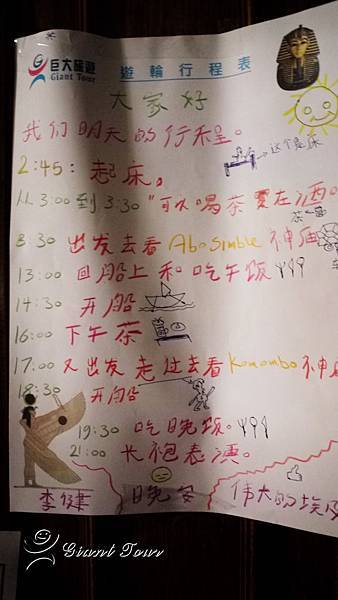 巨大旅遊
Giant Tour
遊輪行程表
大家好
我们明天的行程。
2:45：起床。
这个是床
从3:00到3:30"可以喝茶
茶
8:30 出发去看 Abosimble 神庙
13:00 回船上和吃午饭
14:30 开船
16:00 下午茶
17:00 又出发走过去看 Komombo 神
18:30 开船
19:30 吃晚饭。
21:00 长袍表演。
李健 晚安 伟大的埃及
Giant Tour